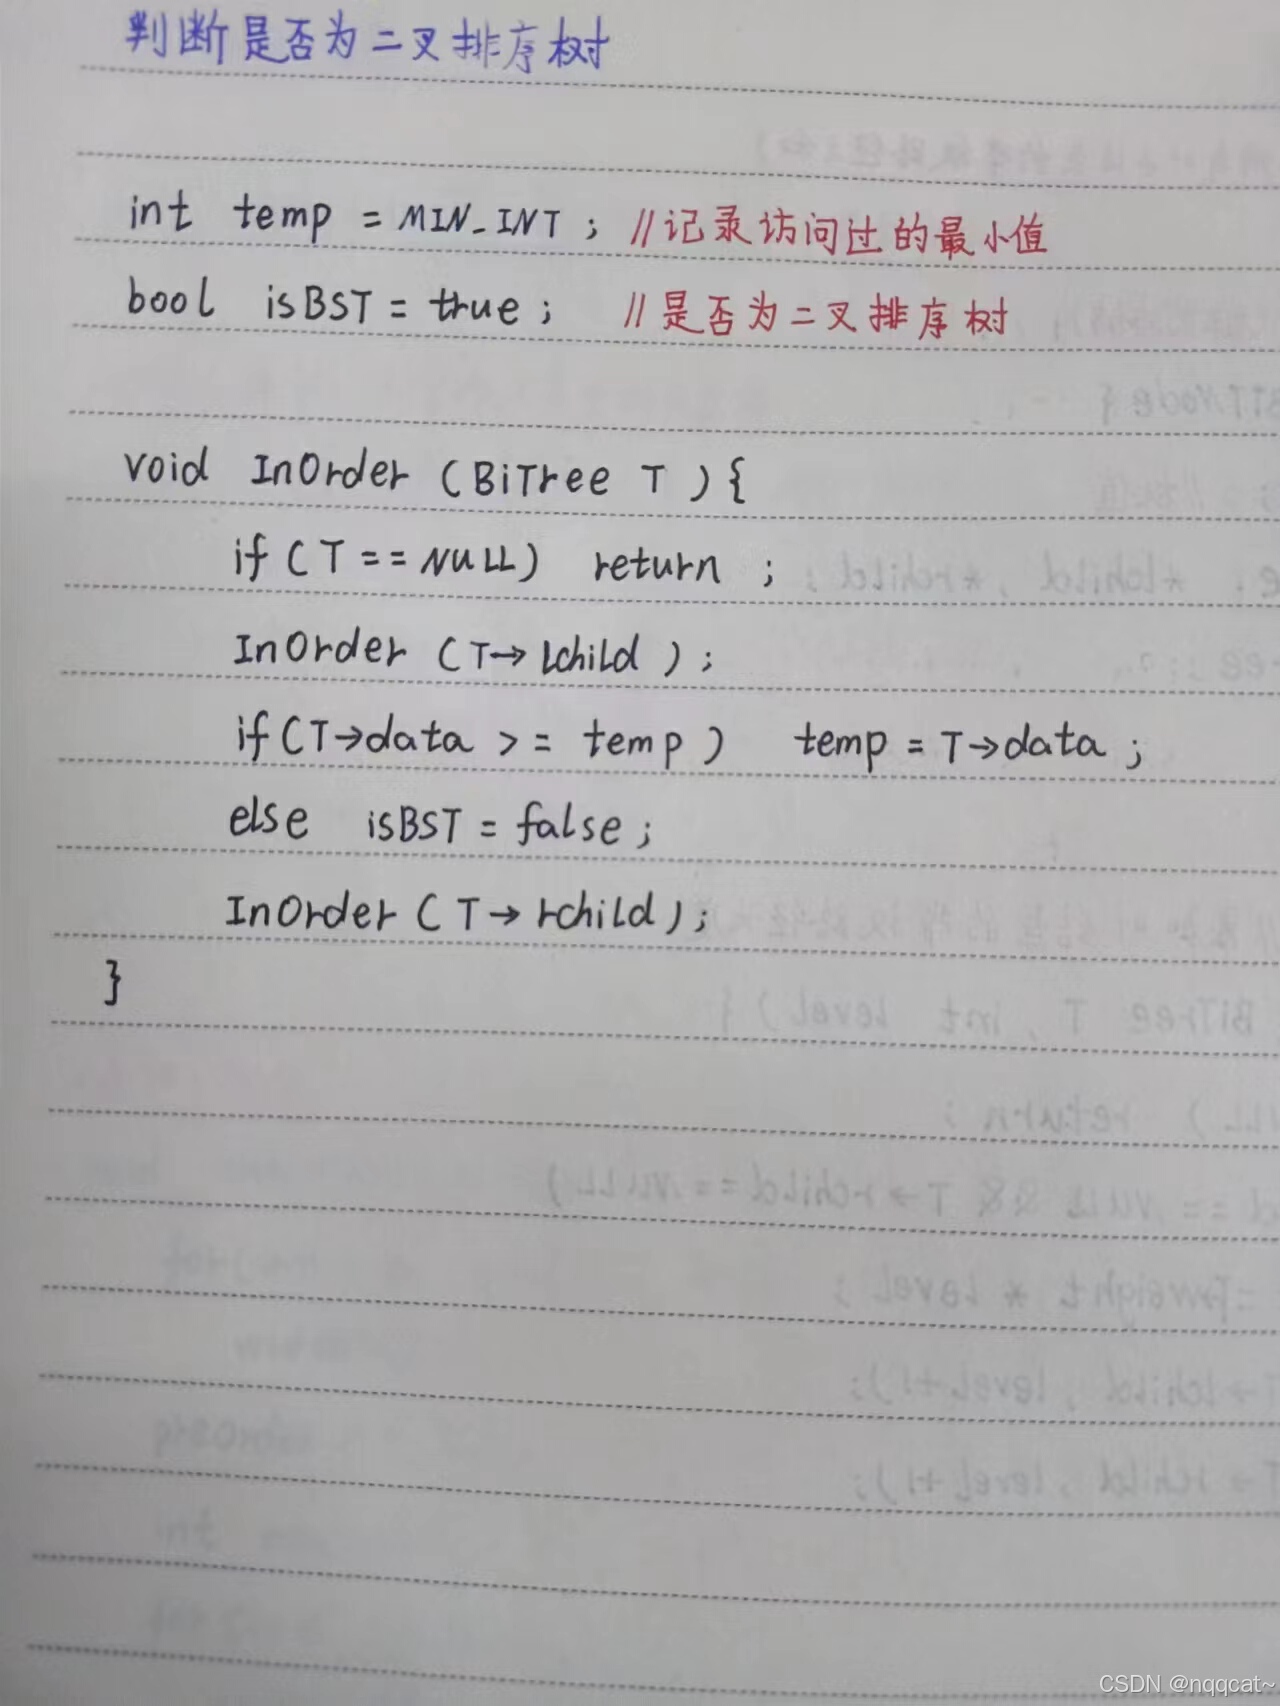 判断是否为二叉排序树
int temp = MIN_INT ; //记录访问过的最小值
bool isBST = true ; //是否为二叉排序树
void InOrder (BiTree T ){
if( T == NULL) return ;
InOrder (T→lchild ) ;
if(T→data >= temp ) temp = T→data ;
else isBST = false ;
InOrder ( T→rchild ) ;
}
CSDN @nqqcat~